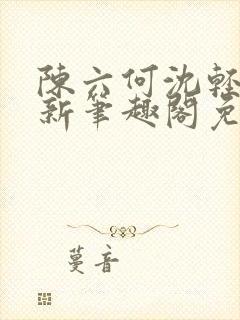 陳六何沈輕
新筆趣閣免
蔓音